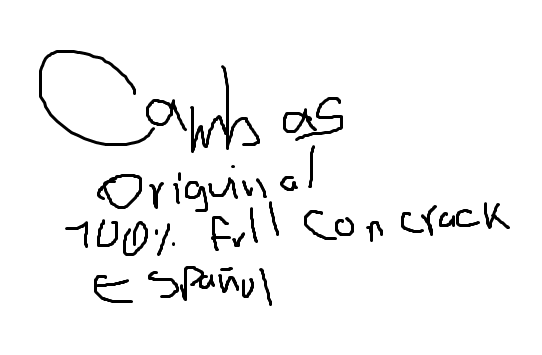 Cambas
Originial
100% full con crack
Español